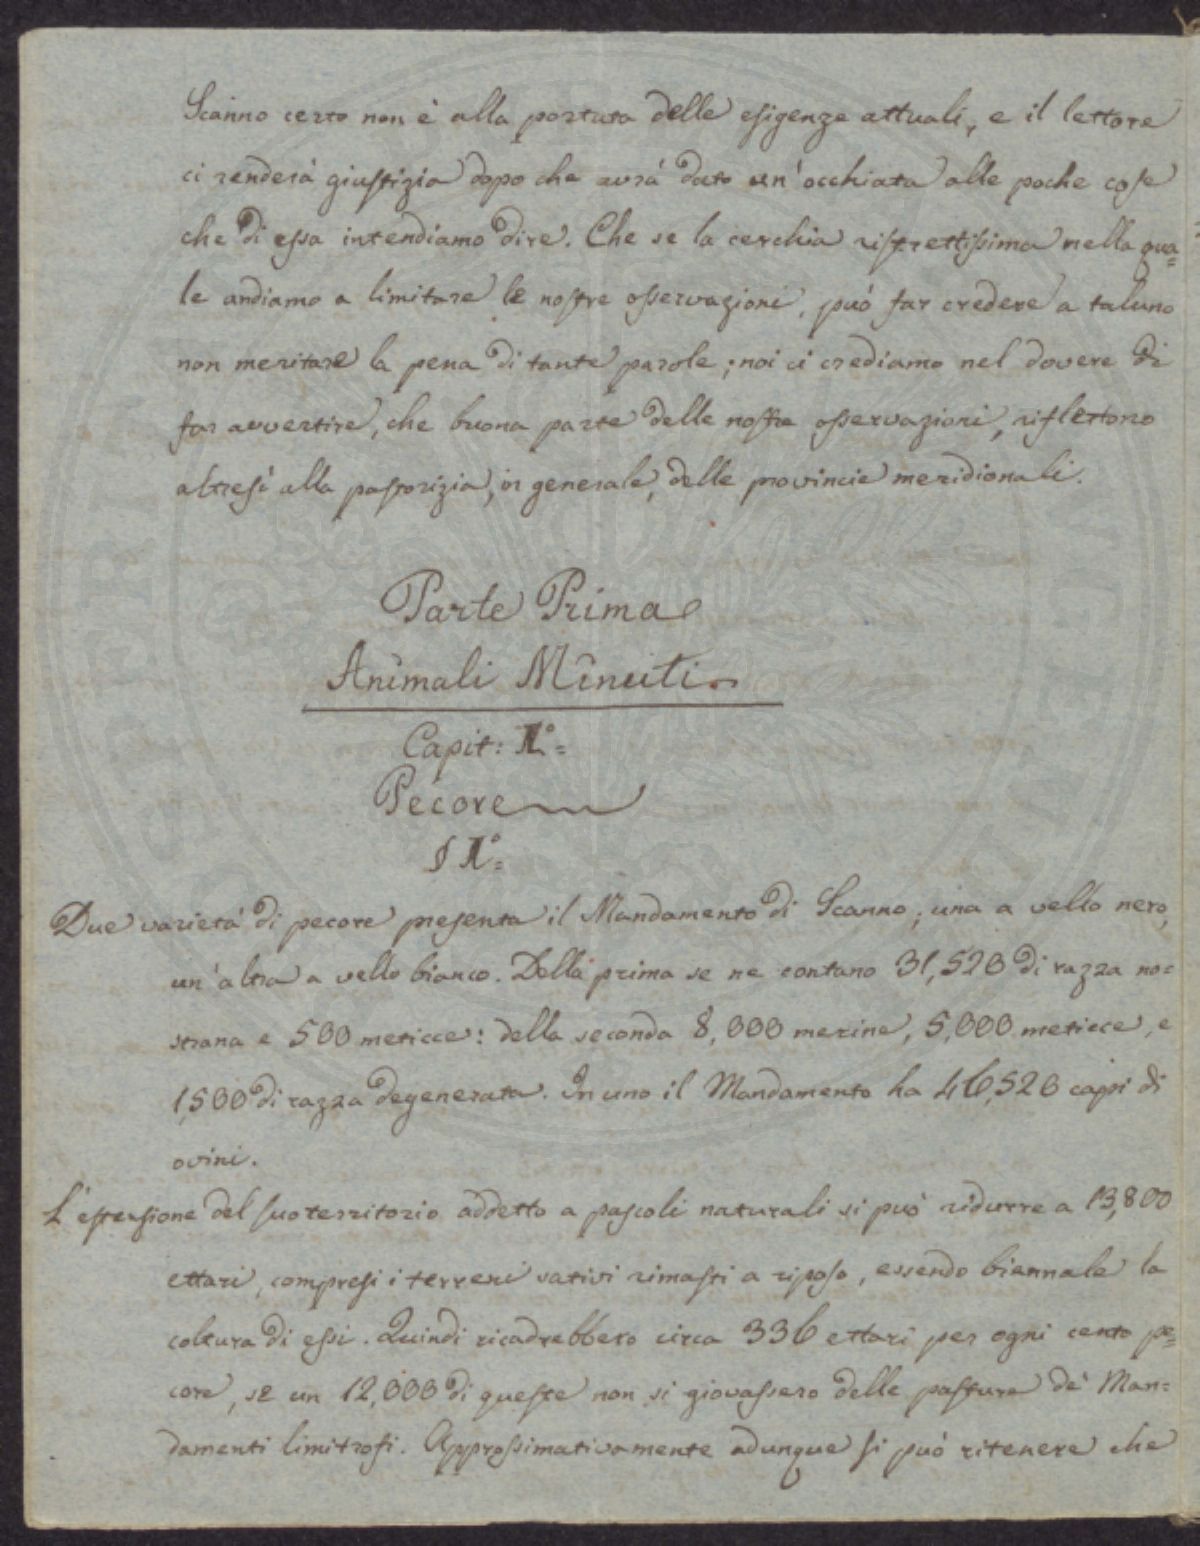 Scanno certo non è alla portata delle esigenze attuali, e il lettore
ci renderà giustizia dopo che avrà dato un' occhiata alle poche cose
che di essa intendiamo dire. Che se la cerchia ristrettissima nella qua=
le andiamo a limitare le nostre osservazioni, può far credere a taluno
non meritare la pena di tante parole; noi ci crediamo nel dovere di
far avvertire, che buona parte delle nostre osservazioni, riflettono
altresì alla pastorizia, in generale, delle provincie meridionali.
Parte Prima
Animali Minuti
Capit: I.°=
Pecore
§ I.°=
Due varietà di pecore presenta il Mandamento di Scanno; una a vello nero,
un' altra a vello bianco. Della prima se ne contano 31,520 di razza no=
strana e 500 meticce: della seconda 8,000 merine, 5,000 meticce, e
1,500 di razza degenerata. In uno il Mandamento ha 46,520 capi di
ovini.
L' estensione del suo territorio addetto a pascoli naturali si può ridurre a 13,800
ettari, compresi i terreni sativi rimasti a riposo, essendo biennale la
coltura di essi. Quindi ricadrebbero circa 336 ettari per ogni cento pe=
core, se un 12,000 di queste non si giovassero delle pasture de' Man=
damenti limitrofi. Approssimativamente adunque si può ritenere che